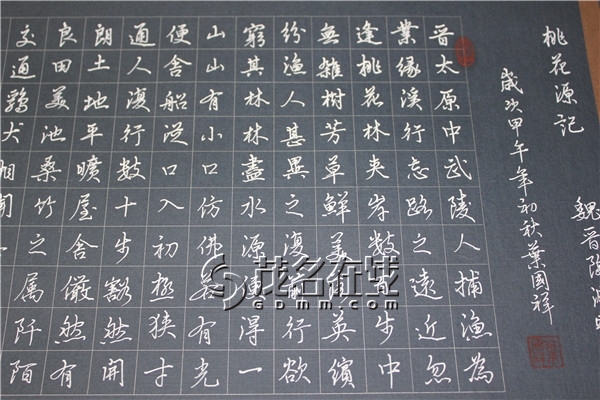 桃花源記
魏晉陶
歲次甲午年初秋葉國祥
晉太原中武陵人捕漁為
業緣溪行忘路之遠近忽
逢桃花林夾岸數百步中
無雜樹芳草鮮美落英繽
紛漁人甚異之復前行欲
窮其林林盡水源便得一
山山有小口仿佛若有光
便舍船從口入初極狹才
通人復行數十步豁然開
朗土地平曠屋舍儼然有
良田美池桑竹之属阡陌
交通鷄犬相聞
茂名在线
gdmm.com